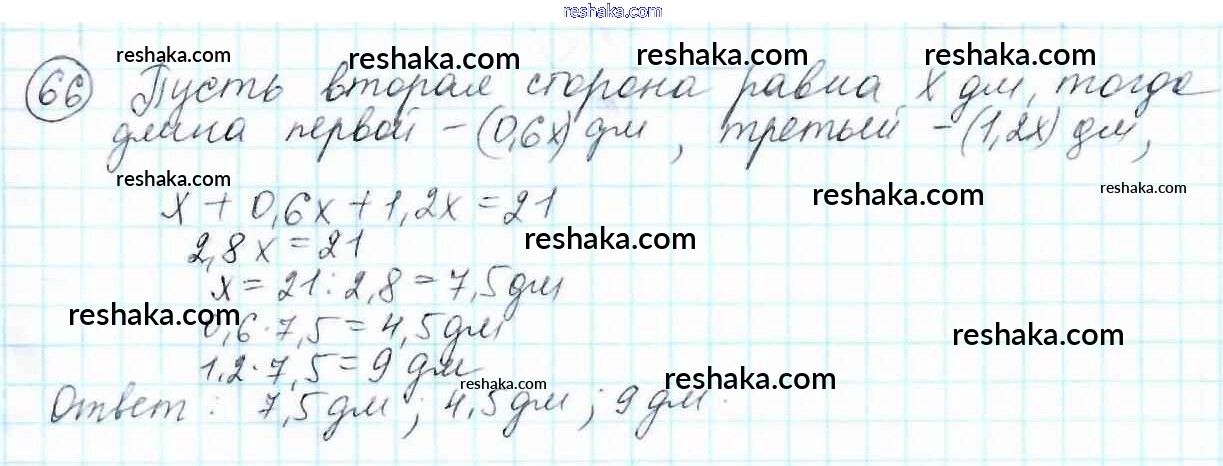 reshaka.com
reshaka.com reshaka.com reshaka.com reshaka.com
66 Пусть вторая сторона равна x дм, тогда
длина первой – (0,6x) дм, третьей – (1,2x) дм,
reshaka.com reshaka.com reshaka.com
x + 0,6x + 1,2x = 21
reshaka.com
2,8x = 21
x = 21 : 2,8 = 7,5 дм
reshaka.com reshaka.com
0,6 · 7,5 = 4,5 дм
1,2 · 7,5 = 9 дм
reshaka.com reshaka.com
Ответ: 7,5 дм; 4,5 дм; 9 дм.